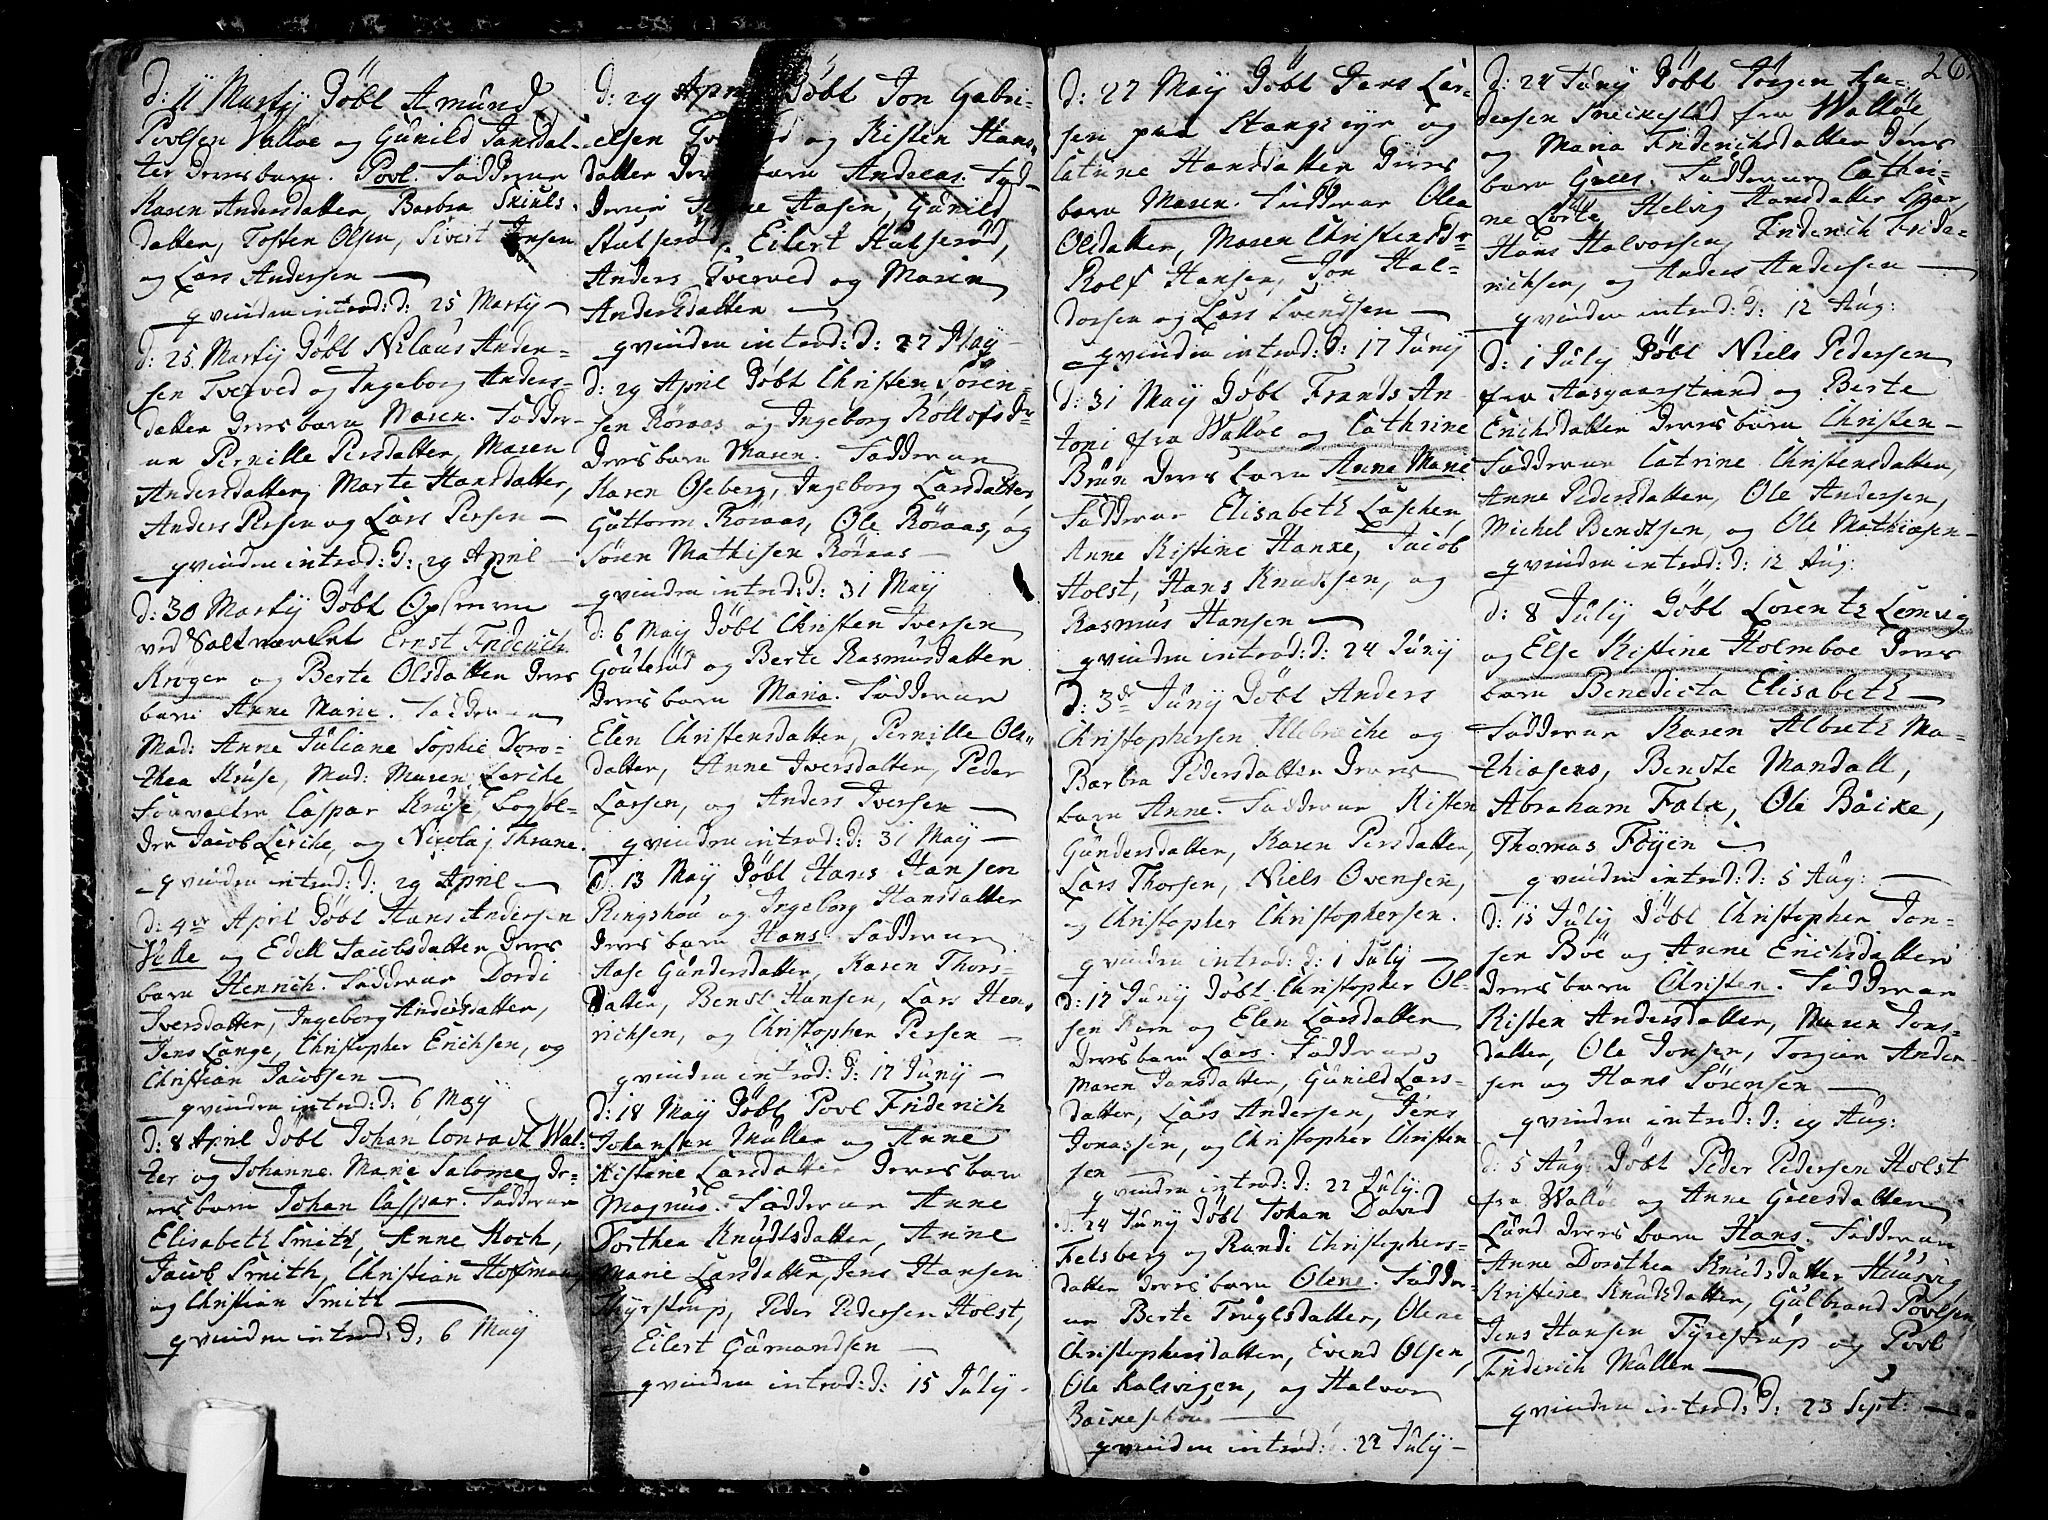 d: 11 Martij Döbt Amund
Povlsen Valløe og Gunild Jansdat-
ter deres barn. Povl. Fadderne
Karen Andersdatter, Barbra
datter, Tosten Olsen, Sivert Jensen
og Lars Andersen —
qvinden introd: d: 25 Martij —
d: 25 Martij Döbt Nilaus Ander-
sen Tverved og Ingeborg Anders-
datter deres barn Maren. Fadder-
ne Pernille Persdatter, Maren
Andersdatter, Marte Hansdatter,
Anders Persen og Lars Persen —
qvinden introd: d: 29 April —
d: 30 Martij Döbt
ved Saltværket Ernst Friderich
Kröger og Berte Olsdatter deres
barn Anne Marie. Fadderne
Mad: Anne Juliane Sophie Doro-
thea Kruse, Mad: Maren Lerche
Forvalter Caspar Kruse, Boghol-
der Jacob Lerche, og Nicolaj Thrane.
qvinden introd: d: 29 April —
d: 4de April Döbt Hans Andersen
Velle og Edell Jacobsdatter deres
barn Henrich. Fadderne Dordi
Iversdatter, Ingeborg Andersdatter,
Jens Lange, Christopher Erichsen, og
Christian Jacobsen —
qvinden introd: d: 6 Maij
d: 8 April Döbt Johan Conradt Wal-
ter og Johanne Marie Salome de-
res barn Johan Caspar. Fadderne
Elisabeth Smith, Anne Koch,
Jacob Smith, Christian Hoffmang
og Christian Smith —
qvinden introd: d: 6 Maij
d: 29 April Döbt Jon Gabri-
elsen og Kisten Hans-
datter deres barn Andreas. Fad-
derne Aasen, Gunild
Stulserød, Eilert Stulserød,
Anders Tverved og Maren
Andersdatter —
qvinden introd: d: 27 Maij —
d: 29 April Döbt Christen Sören-
sen Röraas og Ingeborg Rollofsdr
deres barn Maren. Fadderne
Karen Oseberg, Ingeborg Larsdatter,
Guttorm Röraas, Ole Röraas, og
Sören Mathisen Röraas —
qvinden introd: d: 31 Maij
d: 6 Maij Döbt Christen Iversen
Gouterud og Berte Rasmusdatter
deres barn Maria. Fadderne
Elen Christensdatter, Pernille Ols-
datter, Anne Iversdatter, Peder
Larsen, og Anders Iversen —
qvinden introd: d: 31 Maij —
d: 13 Maij Döbt Hans Hansen
Ringshou og Ingeborg Hansdatter
deres barn Hans. Fadderne
Aase Gundersdatter, Karen Thors-
datter, Bendt Hansen, Lars Hen-
richsen, og Christopher Persen —
qvinden introd: d: 17 Junij —
d: 18 Maij Döbt Povl Friderich
Johansen Müller og Anne
Kistine Larsdatter deres barn
Magnus. Fadderne Anne
Dorthea Knudtsdatter, Anne
Marie Larsdatter, Jens Hansen
Thyrstrup, Peder Pedersen Holst,
og Eilert Gumandsen —
qvinden introd: d: 15 Julij —
d: 27 Maij Döbt Jens Lar-
sen paa Stangs og
Catrine Hansdatter deres
barn Maren. Fadderne Olea
Olsdatter, Maren Christensdr
Rolf Hansen, Jon Hal-
vorsen og Lars Svendsen —
qvinden introd: d: 17 Junij
d: 31 Maij Döbt Frands An-
toni fra Walløe og Cathrine
Brun deres barn Anne Marie
Fadderne Elisabeth Laschen,
Anne Kistine Hanke, Jacob
Holst, Hans Knudsen, og
Rasmus Hansen —
qvinden introd: d: 24 Junij
d: 3de Junij Döbt Anders
Christophersen Ilebreche og
Barbra Pedersdatter deres
barn Anne. Fadderne Kisten
Gundersdatter, Karen Persdatter,
Lars Thorsen, Niels Ovensen,
og Christopher Christophersen.
qvinden introd: d: 1 Julij —
d: 17 Junij Döbt Christopher Ol-
sen Ram og Elen Larsdatter
deres barn Lars. Fadderne
Maren Jansdatter, Gunild Lars-
datter, Lars Andersen, Jens
Jonassen, og Christopher Christen
sen —
qvinden introd: d: 22 Julij.
d: 24 Junij Döbt Johan David
Felsberg og Randi Christophers-
datter deres barn Olene. Fadder-
ne Berte Trugelsdatter, Olene
Christophersdatter, Evend Olsen,
Ole Kalsvigen, og Halvor
Bakeschou —
qvinden introd: d. 22 Julij —
26.
d: 24 Junij Döbt Jörgen An-
dersen fra Walløe,
og Maria Friderichsdatter deres
barn Grees. Fadderne Cathri-
ne Lorte, Helvig Hansdatter Skar,
Hans Halvorsen, Friderich Fride-
richsen, og Anders Andersen —
qvinden introd: d: 12 Aug:
d: 1 Julij Döbt Niels Pedersen
fra Aasgaarstrand og Berte
Erichsdatter deres barn Christen —
Fadderne Catrine Christensdatter,
Anne Pedersdatter, Ole Andersen,
Michel Bendtsen, og Ole Mathiasen —
qvinden introd: d: 12 Aug:
d: 8 Julij Döbt Lorents Lemvig
og Else Kistine Holmboe deres
barn Benedicta Elisabeth —
Fadderne Karen Albreth Ma-
thiasens, Bendte Mandall,
Abraham Falk, Ole Backe,
Thomas Föyen —
qvinden introd: d: 5 Aug: —
d: 15 Julij Döbt Christopher Jon-
sen Böe og Anne Erichsdatter
deres barn Christen. Fadderne
Kisten Andersdatter, Maren Jons-
datter, Ole Jonsen, Torgier Ander-
sen og Hans Sörensen —
qvinden introd: d: 19 Aug:
d: 5 Aug: Döbt Peder Pedersen Holst
fra Walløe og Anne Greesdatter
Lund deres barn Hans. Fadderne
Anne Dorothea Knudsdatter Huusvig
Kristine Knudsdatter, Gulbrand Povlsen
Jens Hansen Tyrestrup og Povl
Friderich Müller —
qvinden introd: d: 23 Sept: —